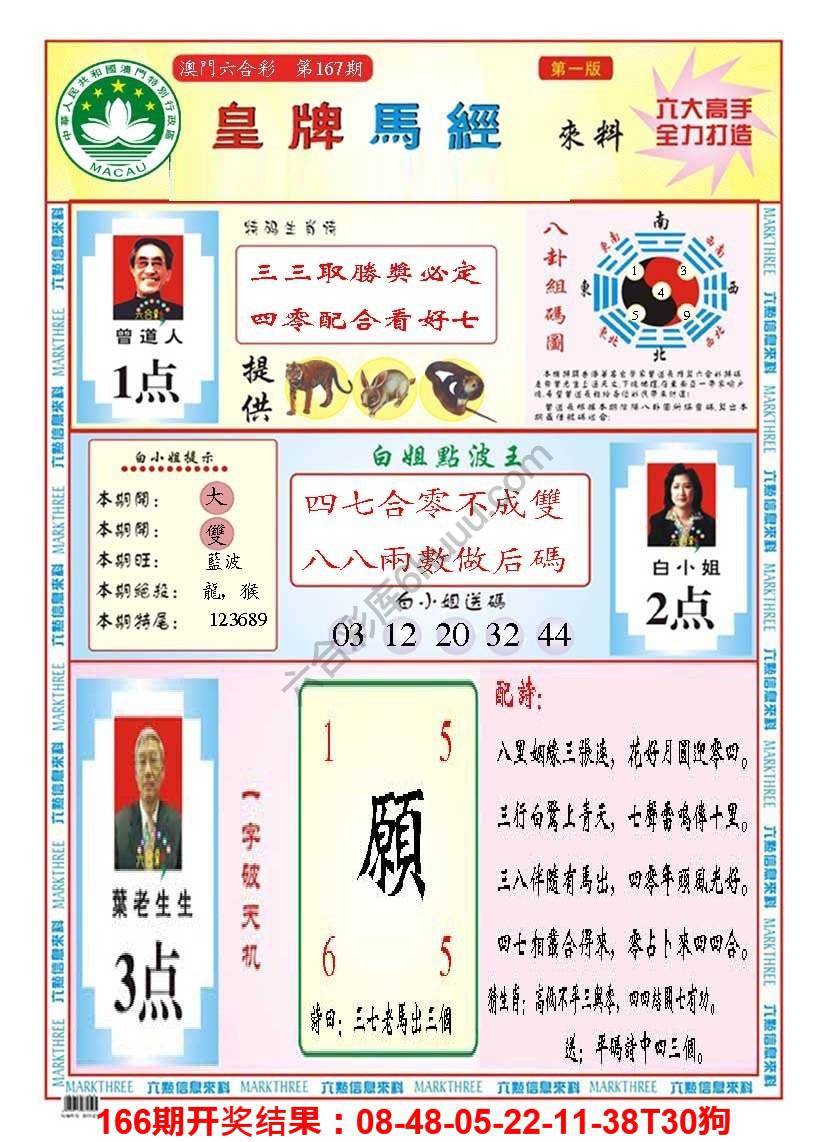 澳門六合彩 第167期
第一版
中華人民共和國澳門特別行政區
MACAU
皇牌馬經
來料
六大高手
全力打造
特碼生肖詩
三三取勝獎必定
四零配合看好七
曾道人
1点
提供
八卦組碼圖
南
東南
西南
東
西
東北
西北
北
1
3
4
5
9
白小姐提示
本期開：大
本期開：雙
本期旺：藍波
本期絕殺：龍，猴
本期特尾：123689
白姐點波王
四七合零不成雙
八八兩數做后碼
白小姐送碼
03 12 20 32 44
白小姐
2点
葉老生生
3点
一字破天机
1 5
願
6 5
詩曰：三七老馬出三個
配詩：
八里姻緣三張連，花好月圓迎零四。
三行白鷺上青天，七聲雷鳴傳十里。
三八伴隨有馬出，四零年頭風光好。
四七相靠合得來，零占卜來四四合。
猜生肖：高低不平三與零，四四結關七有功。
送：平碼詩中四三個。
MARKTHREE 六點信息來料 MARKTHREE 六點信息來料 MARKTHREE 六點信息來料 MARKTHREE 六點信息來料
六合彩库6huuu.com
166期开奖结果：08-48-05-22-11-38T30狗